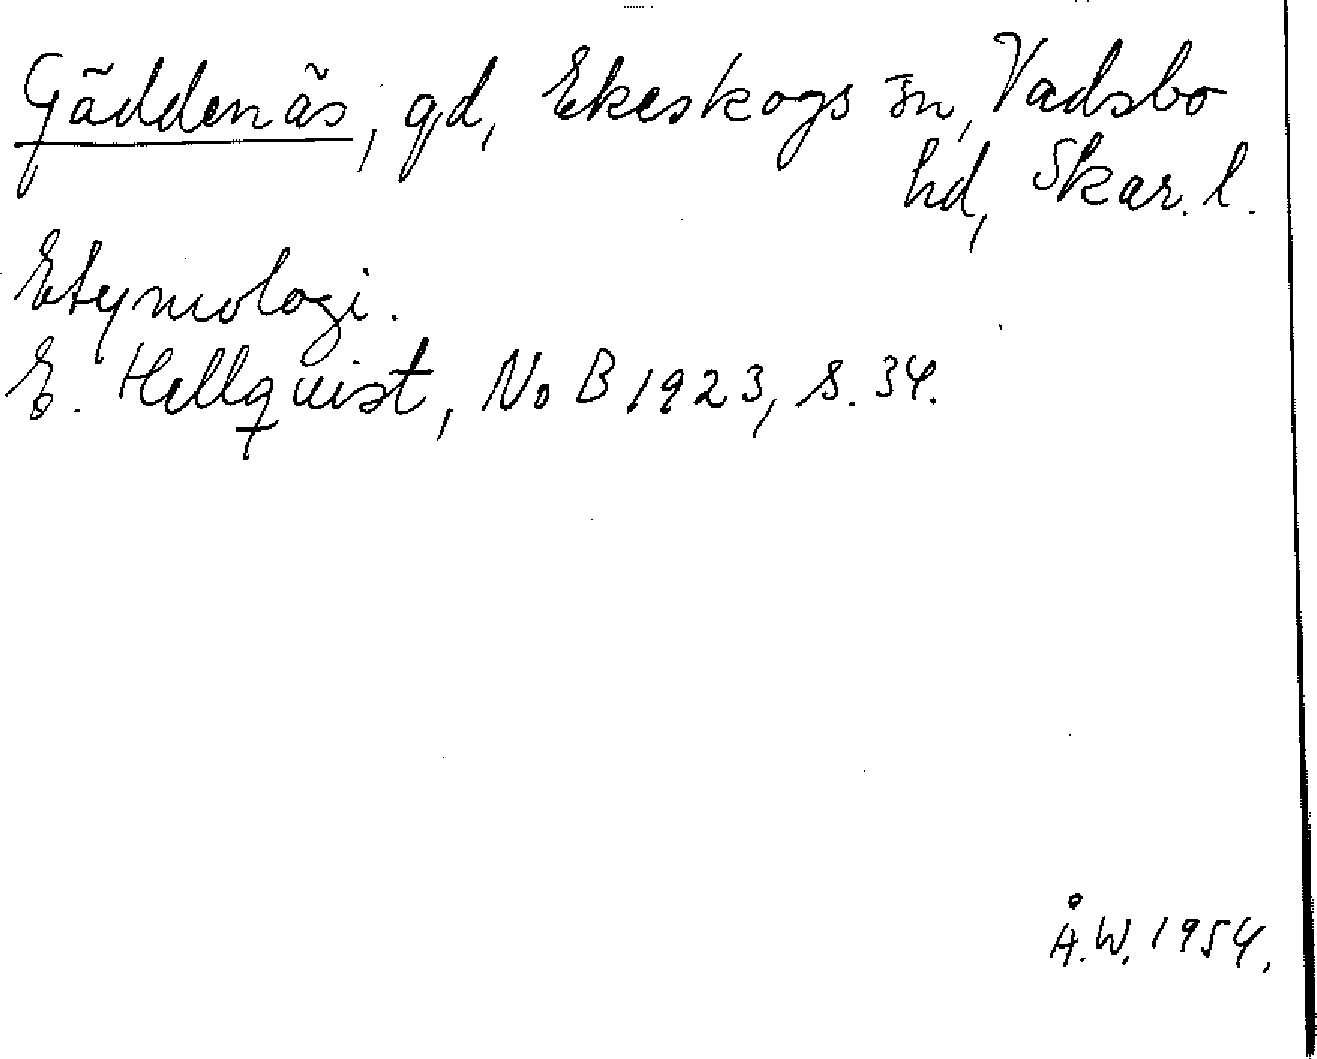 Gäddenäs, gd, Ekeskogs sn, Vadsbo
hd, Skar. l.
Etymologi.
E. Hellquist, NoB 1923, s. 34.
Å.W. 1954.